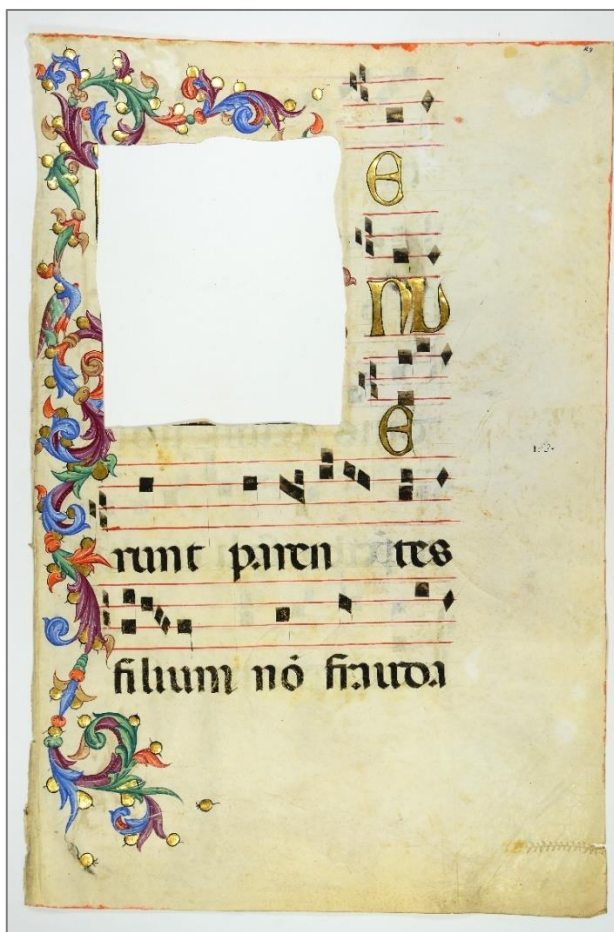 E
NU
E
runt paren tes
filium nō frauda